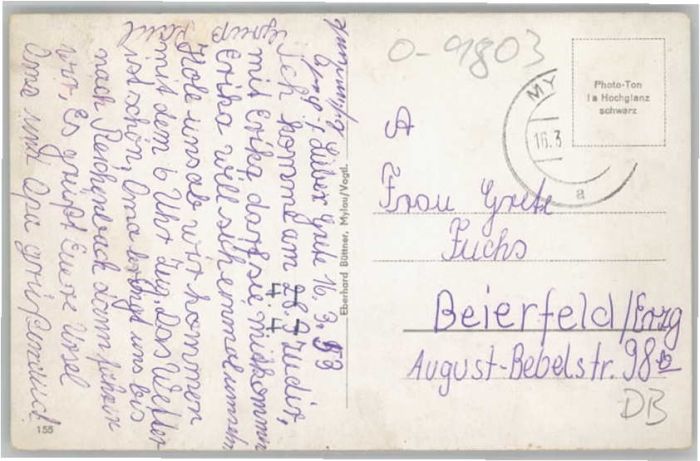 Liebe Grete 16. 3. 53
Ich komme am 28. 3 zu dir,
4 4
mit Erika, darf sie mitkommen
Erika will sich einmal umsehn
Hole uns ab wir kommen
mit dem 6 Uhr Zug. Das Wetter
ist schön, Oma bringt uns bis
nach Reichenbach dann fahren
wir, Es grüßt Euere Ursel
Oma und Opa grüßen auch
155
Eberhard Büttner, Mylau/Vogtl.
0-9803
Photo-Ton
Ia Hochglanz
schwarz
MY
16.3
a
A
Frau Grete
Fuchs
Beierfeld/Erzg
August-Bebelstr. 98
DB